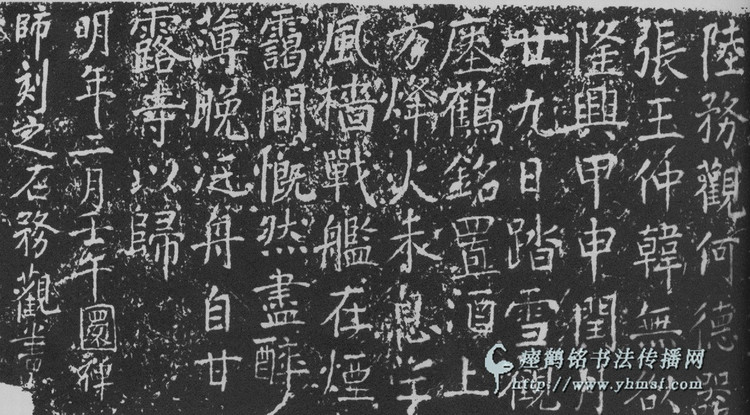 陸務觀何德器
張玉仲韓無咎
隆興甲申閏月
廿九日踏雪觀
瘞鶴銘置酒上
方烽火未息望
風檣戰艦在煙
靄間慨然盡醉
薄晚泛舟自甘
露寺以歸
明年二月壬午圜禪
師刻之石務觀書
瘗鹤铭书法传播网
http://www.yhmsf.com